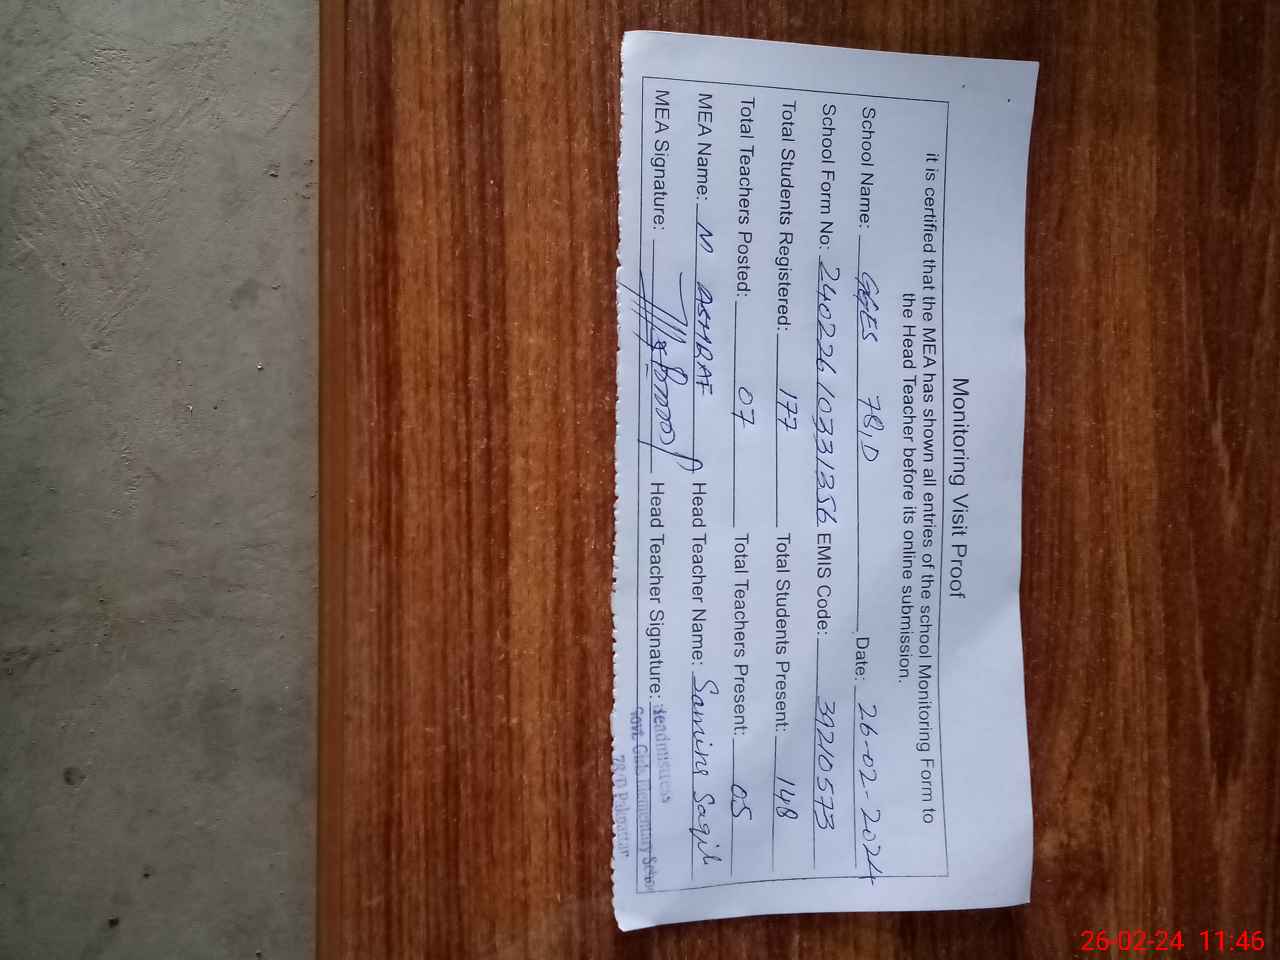 Monitoring Visit Proof
it is certified that the MEA has shown all entries of the school Monitoring Form to
the Head Teacher before its online submission.
School Name: GGES 78,D Date: 26-02-2024
School Form No: 24022610331356 EMIS Code: 39210573
Total Students Registered: 177 Total Students Present: 148
Total Teachers Posted: 07 Total Teachers Present: 05
MEA Name: M ASHRAF Head Teacher Name: Samina Saqib
MEA Signature: Head Teacher Signature: Headmistress
Govt. Girls Elementary School
78/D Pakpattan
26-02-24 11:46